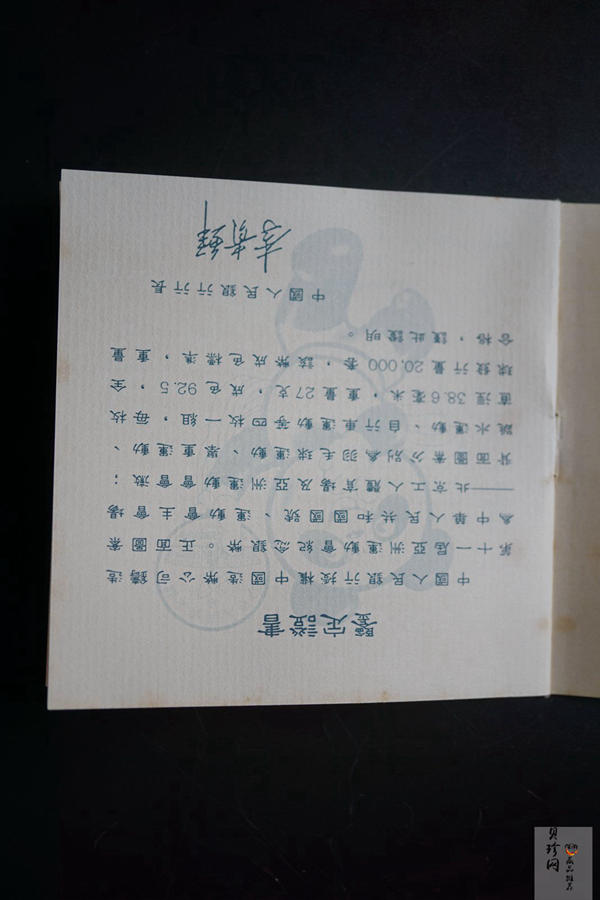 鑒定證書
中國人民銀行授權中國造幣公司鑄造
第十一屆亞洲運動會紀念銀幣。正面圖案
為中華人民共和國國號、運動會主會場
——北京人工體育場及亞洲運動會會徽；
背面圖案分別為羽毛球運動、舉重運動、
跳水運動、自行車運動等四枚一組，每枚
直徑38.6毫米，重量27克，成色92.5，全
球發行量20,000套，該幣成色標準，重量
合格，謹此證明。
中國人民銀行行長
李貴鮮
贝珍网